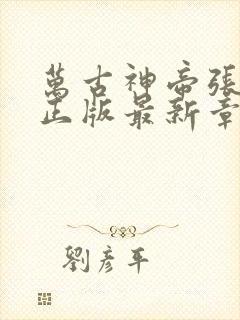 萬古神帝張
正版最新章
劉彥平